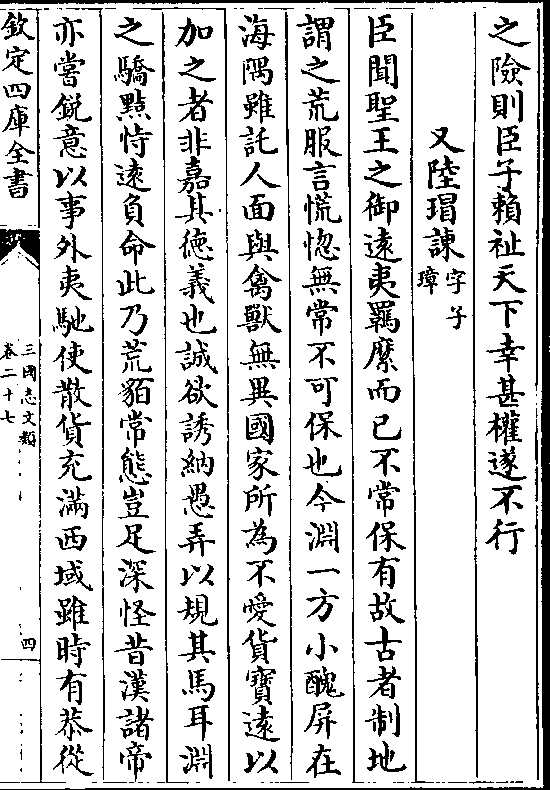 之險則臣子賴祉天下幸甚權遂不行
又陸瑁諫字子璋
臣聞聖王之御遠夷羈縻而已不常保有故古者制地
謂之荒服言慌惚無常不可保也今淵一方小醜屏在
海隅雖託人面與禽獸無異國家所為不愛貨寶遠以
加之者非嘉其德義也誠欲誘納愚弄以規其馬耳淵
之驕黠恃遠負命此乃荒貊常態豈足深怪昔漢諸帝
亦嘗鋭意以事外夷馳使散貨充滿西域雖時有恭從
欽定四庫全書
三國志文類
卷二十七
四